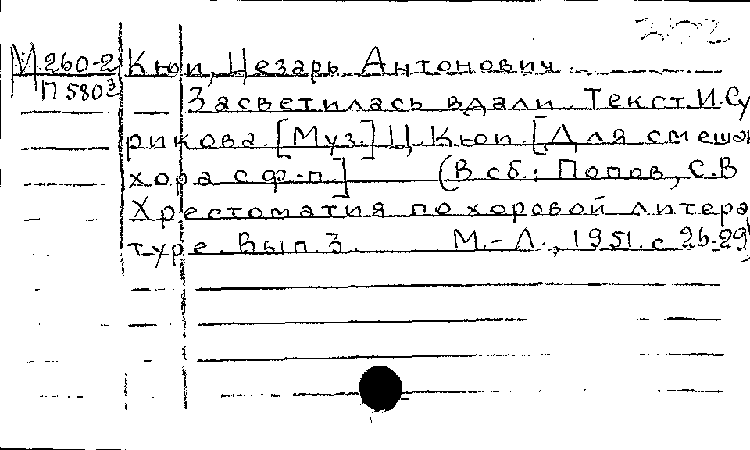 М 260-2 Кюи, Цезарь Антонович
П 5803
Засветилась вдали. Текст И. Су
рикова [Муз.] Ц. Кюи [Для смеша
хора с ф.-п.] (В сб.: Попов, С.В
Хрестоматия по хоровой литера
туре. Вып. 3. М.-Л., 1951. с 26-29)